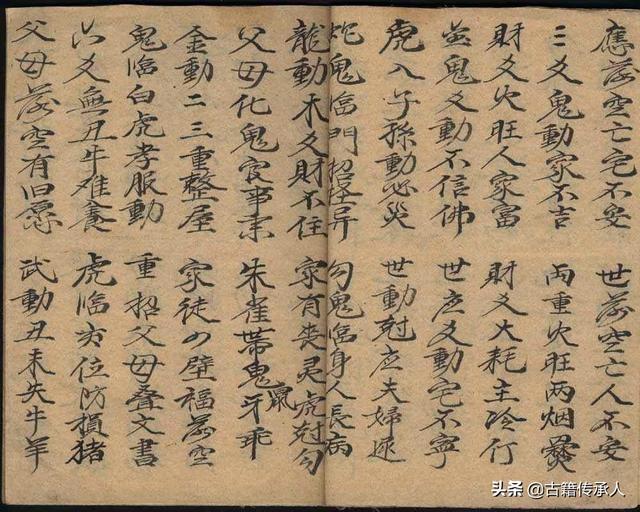 應落空亡宅不安　世落空亡人不安
三爻鬼動家不吉　両重火旺两烟爨
財爻火旺人家富　財爻大耗主冷仃
並鬼爻動不信佛　世应爻動宅不寧
虎入子孫動必災　世動尅应夫婦遠
蛇鬼临門招怪异　勾鬼临身人長病
龍動木爻財不住　家有丧灵虎尅勾
父母化鬼官事来　朱雀带鬼鼠牙乖
金動二三重整屋　家徒四壁福落空
鬼临白虎孝服動　重招父母叠文書
六爻無丑牛难養　虎临亥位防損猪
父母落空有旧愿　武動丑未失牛羊
头条 @古籍传承人